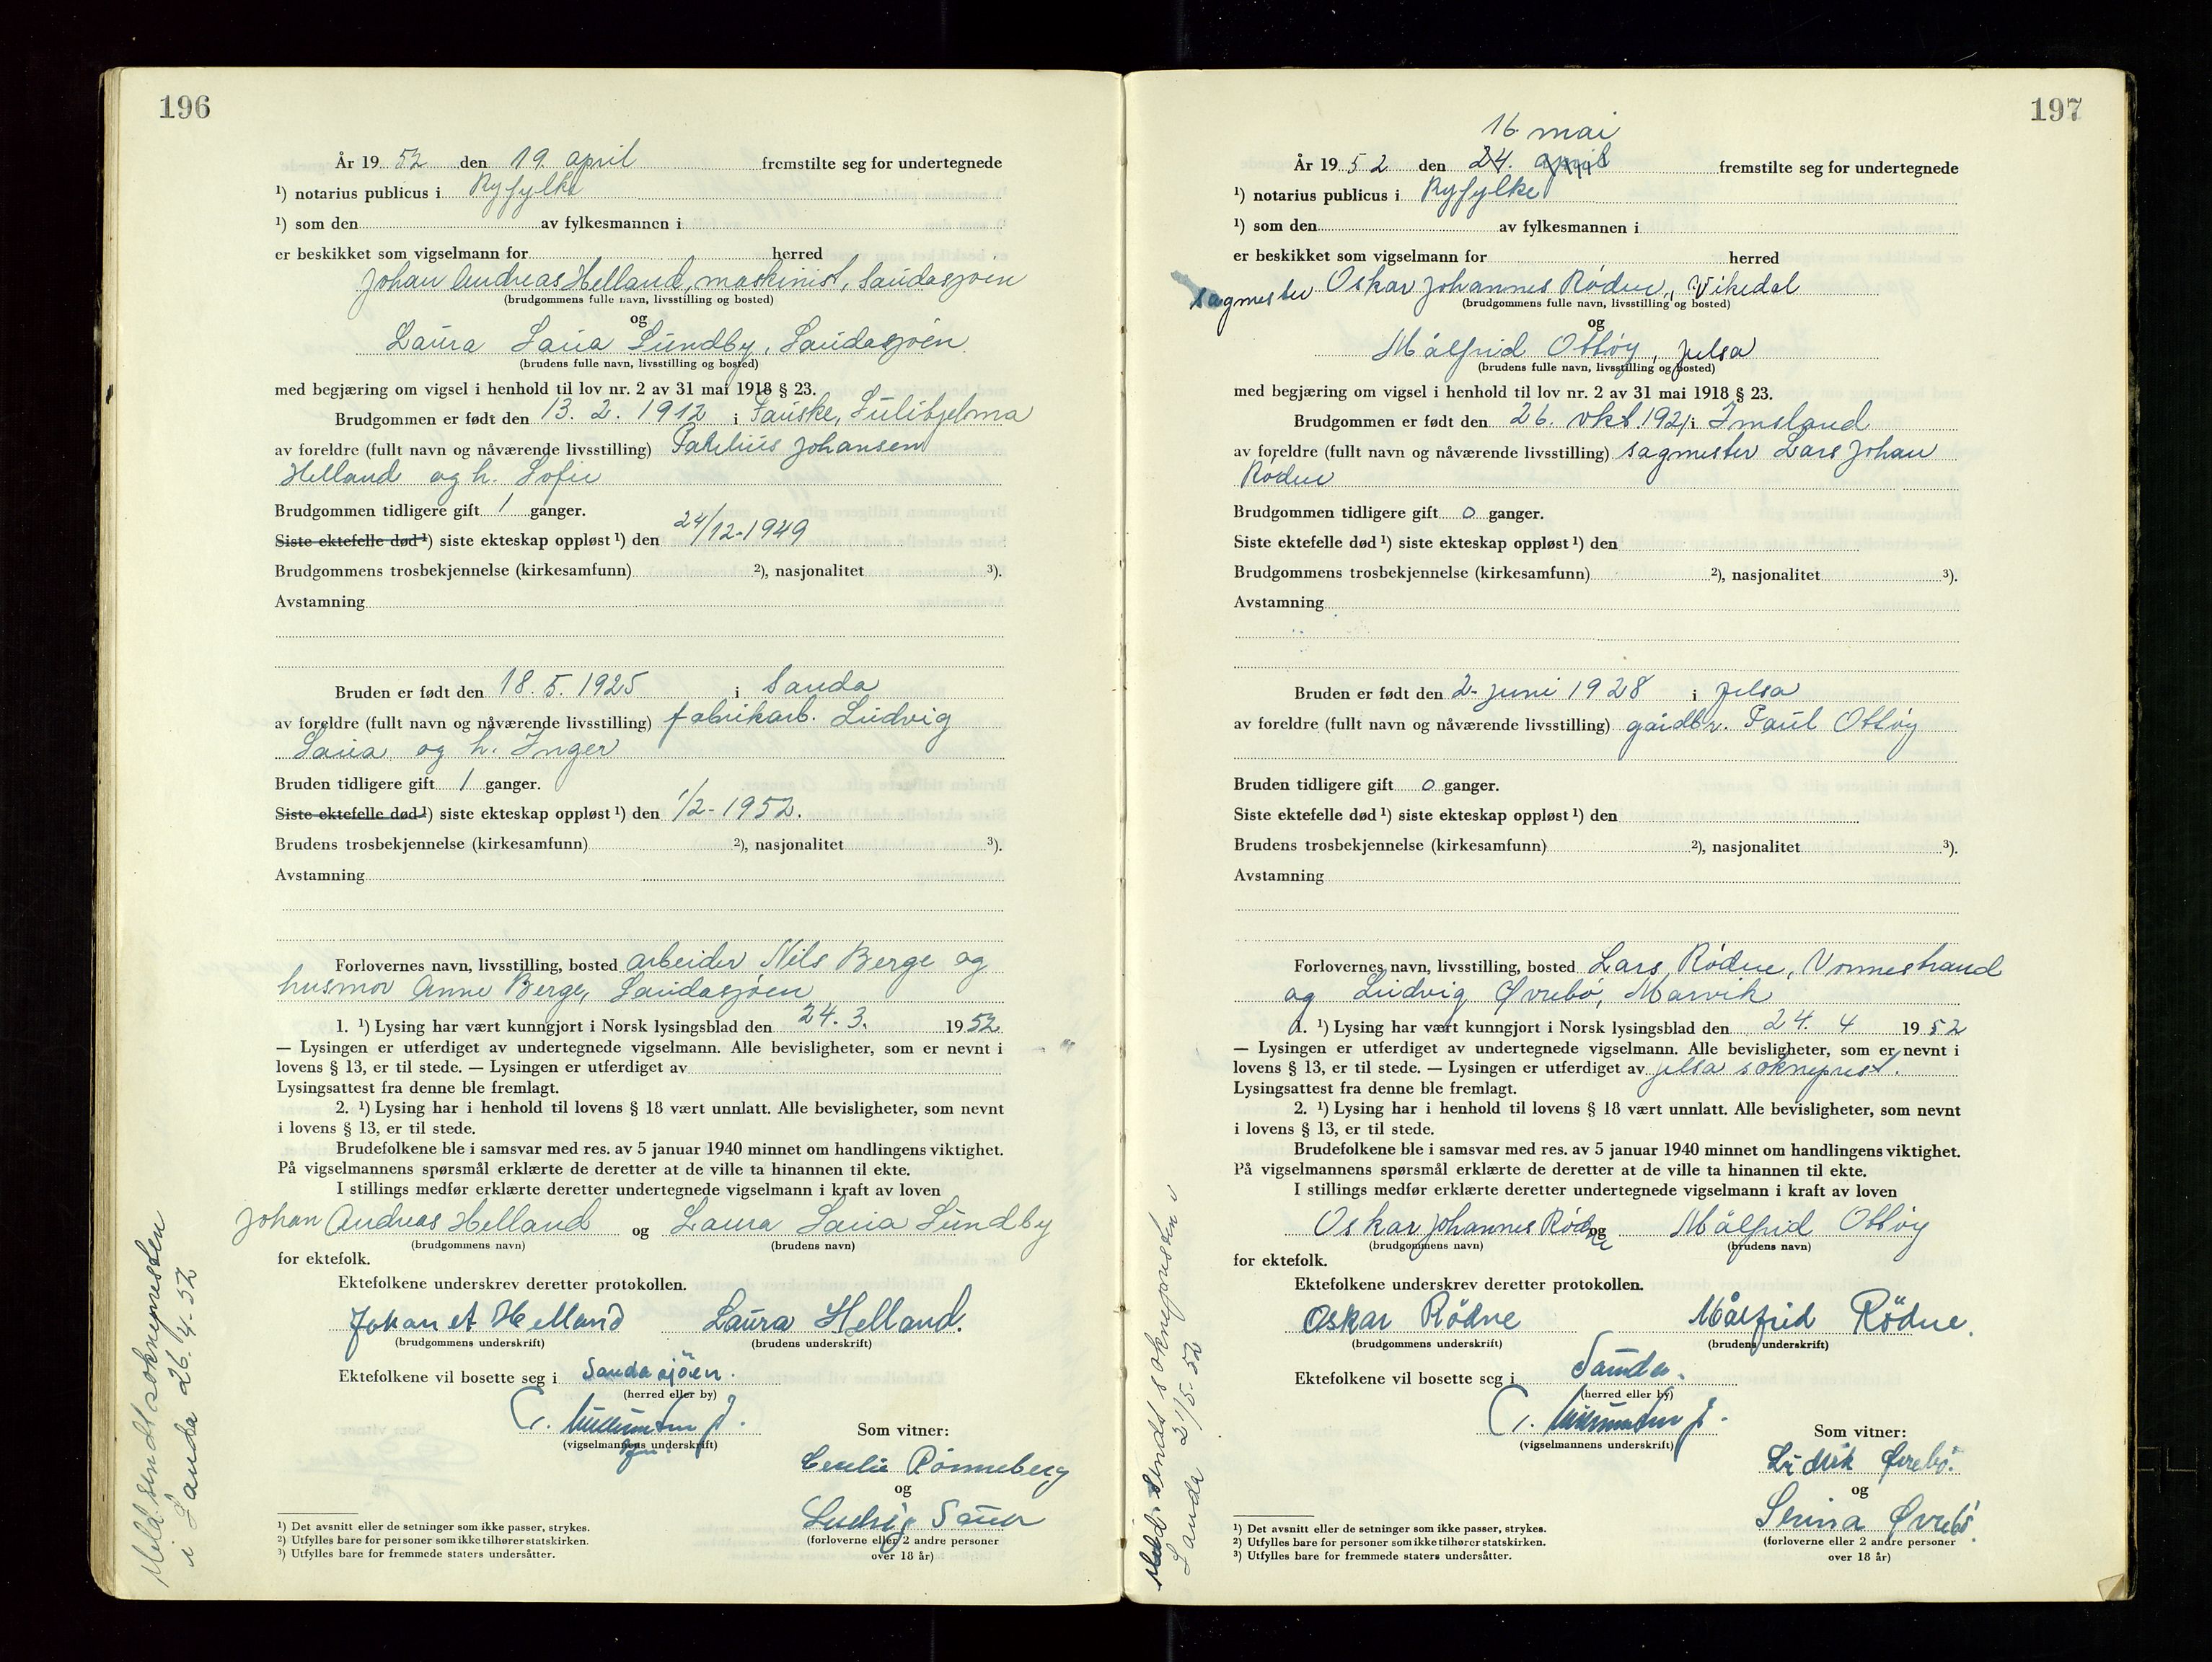 196
År 19 52 den 19. april fremstilte seg for undertegnede
¹) notarius publicus i Ryfylke
¹) som den av fylkesmannen i
er beskikket som vigselmann for herred
Johan Andreas Helland, maskinist, Saudasjøen
(brudgommens fulle navn, livsstilling og bosted)
og
Laura Saua Sundby, Saudasjøen
(brudens fulle navn, livsstilling og bosted)
med begjæring om vigsel i henhold til lov nr. 2 av 31 mai 1918 § 23.
Brudgommen er født den 13. 2. 1912 i Fauske, Sulitjelma
av foreldre (fullt navn og nåværende livsstilling) Johansen
Helland og h. Sofie
Brudgommen tidligere gift 1 ganger.
Siste ektefelle død ¹) siste ekteskap oppløst ¹) den 24/12-1949
Brudgommens trosbekjennelse (kirkesamfunn) ²), nasjonalitet ³).
Avstamning
Bruden er født den 18. 5. 1925 i Sauda
av foreldre (fullt navn og nåværende livsstilling) fabrikarb. Ludvig
Saua og h. Inger
Bruden tidligere gift 1 ganger.
Siste ektefelle død ¹) siste ekteskap oppløst ¹) den 1/2-1952.
Brudens trosbekjennelse (kirkesamfunn) ²), nasjonalitet ³).
Avstamning
Forlovernes navn, livsstilling, bosted arbeider Nils Berge og
husmor Anne Berge, Saudasjøen
1. ¹) Lysing har vært kunngjort i Norsk lysingsblad den 24. 3. 1952
— Lysingen er utferdiget av undertegnede vigselmann. Alle bevisligheter, som er nevnt i
lovens § 13, er til stede. — Lysingen er utferdiget av
Lysingsattest fra denne ble fremlagt.
2. ¹) Lysing har i henhold til lovens § 18 vært unnlatt. Alle bevisligheter, som nevnt
i lovens § 13, er til stede.
Brudefolkene ble i samsvar med res. av 5 januar 1940 minnet om handlingens viktighet.
På vigselmannens spørsmål erklærte de deretter at de ville ta hinannen til ekte.
I stillings medfør erklærte deretter undertegnede vigselmann i kraft av loven
Johan Andreas Helland og Laura Saua Sundby
(brudgommens navn) (brudens navn)
for ektefolk.
Ektefolkene underskrev deretter protokollen.
Johan A Helland Laura Helland.
(brudgommens underskrift) (brudens underskrift)
Ektefolkene vil bosette seg i Saudasjöen.
(herred eller by)
(vigselmannens underskrift)
Som vitner:
Cecilie Rönneberg
og
Ludvig Saua
(forloverne eller 2 andre personer
over 18 år)
¹) Det avsnitt eller de setninger som ikke passer, strykes.
²) Utfylles bare for personer som ikke tilhører statskirken.
³) Utfylles bare for fremmede staters undersåtter.
Meld. sendt soknepresten
i Sauda 26.4.52
197
16. mai
År 1952 den 24. april fremstilte seg for undertegnede
¹) notarius publicus i Ryfylke
¹) som den av fylkesmannen i
er beskikket som vigselmann for herred
sagmester Oskar Johannes Rødne, Vikedal
(brudgommens fulle navn, livsstilling og bosted)
og
Målfrid Ottøy, Jelsa
(brudens fulle navn, livsstilling og bosted)
med begjæring om vigsel i henhold til lov nr. 2 av 31 mai 1918 § 23.
Brudgommen er født den 26. okt. 1921 i Imsland
av foreldre (fullt navn og nåværende livsstilling) sagmester Lars Johan
Rødne
Brudgommen tidligere gift 0 ganger.
Siste ektefelle død ¹) siste ekteskap oppløst ¹) den
Brudgommens trosbekjennelse (kirkesamfunn) ²), nasjonalitet ³).
Avstamning
Bruden er født den 2. juni 1928 i Jelsa
av foreldre (fullt navn og nåværende livsstilling) gårdbr. Paul Ottøy
Bruden tidligere gift 0 ganger.
Siste ektefelle død ¹) siste ekteskap oppløst ¹) den
Brudens trosbekjennelse (kirkesamfunn) ²), nasjonalitet ³).
Avstamning
Forlovernes navn, livsstilling, bosted Lars Rødne, Vormestrand
og Ludvig Øvrebø, Marvik
1. ¹) Lysing har vært kunngjort i Norsk lysingsblad den 24. 4 1952
— Lysingen er utferdiget av undertegnede vigselmann. Alle bevisligheter, som er nevnt i
lovens § 13, er til stede. — Lysingen er utferdiget av Jelsa sokneprest.
Lysingsattest fra denne ble fremlagt.
2. ¹) Lysing har i henhold til lovens § 18 vært unnlatt. Alle bevisligheter, som nevnt
i lovens § 13, er til stede.
Brudefolkene ble i samsvar med res. av 5 januar 1940 minnet om handlingens viktighet.
På vigselmannens spørsmål erklærte de deretter at de ville ta hinannen til ekte.
I stillings medfør erklærte deretter undertegnede vigselmann i kraft av loven
Oskar Johannes Rødne og Målfrid Ottøy
(brudgommens navn) (brudens navn)
for ektefolk.
Ektefolkene underskrev deretter protokollen.
Oskar Rödne Målfrid Rödne.
(brudgommens underskrift) (brudens underskrift)
Ektefolkene vil bosette seg i Sauda.
(herred eller by)
(vigselmannens underskrift)
Som vitner:
Øvrebö.
og
Øvrebö.
(forloverne eller 2 andre personer
over 18 år)
¹) Det avsnitt eller de setninger som ikke passer, strykes.
²) Utfylles bare for personer som ikke tilhører statskirken.
³) Utfylles bare for fremmede staters undersåtter.
Meld. sendt soknepresten i
Sauda 21/5-52